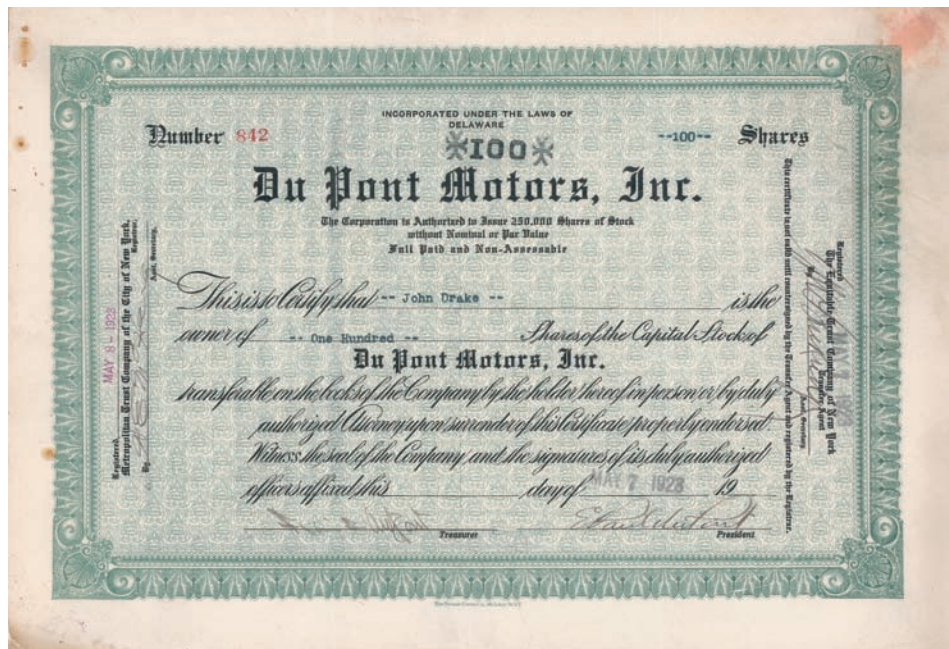 INCORPORATED UNDER THE LAWS OF
DELAWARE
Number 842
--100-- Shares
*100*
Du Pont Motors, Inc.
The Corporation is Authorized to Issue 250,000 Shares of Stock
without Nominal or Par Value
Full Paid and Non-Assessable
This is to Certify that -- John Drake -- is the
owner of -- One Hundred -- Shares of the Capital Stock of
Du Pont Motors, Inc.
transferable on the books of the Company by the holder hereof in person or by duly
authorized Attorney upon surrender of this Certificate properly endorsed.
Witness the seal of the Company, and the signatures of its duly authorized
officers affixed this day of MAY 7 1923 19
Treasurer
E Paul du Pont
President
MAY 8 - 1923
Registered,
Metropolitan Trust Company of the City of New York,
Registrar,
By
Asst. Secretary.
This certificate is not valid until countersigned by the Transfer Agent and registered by the Registrar.
Registered
The Equitable Trust Company of New York
Transfer Agent
By
Asst. Secretary.